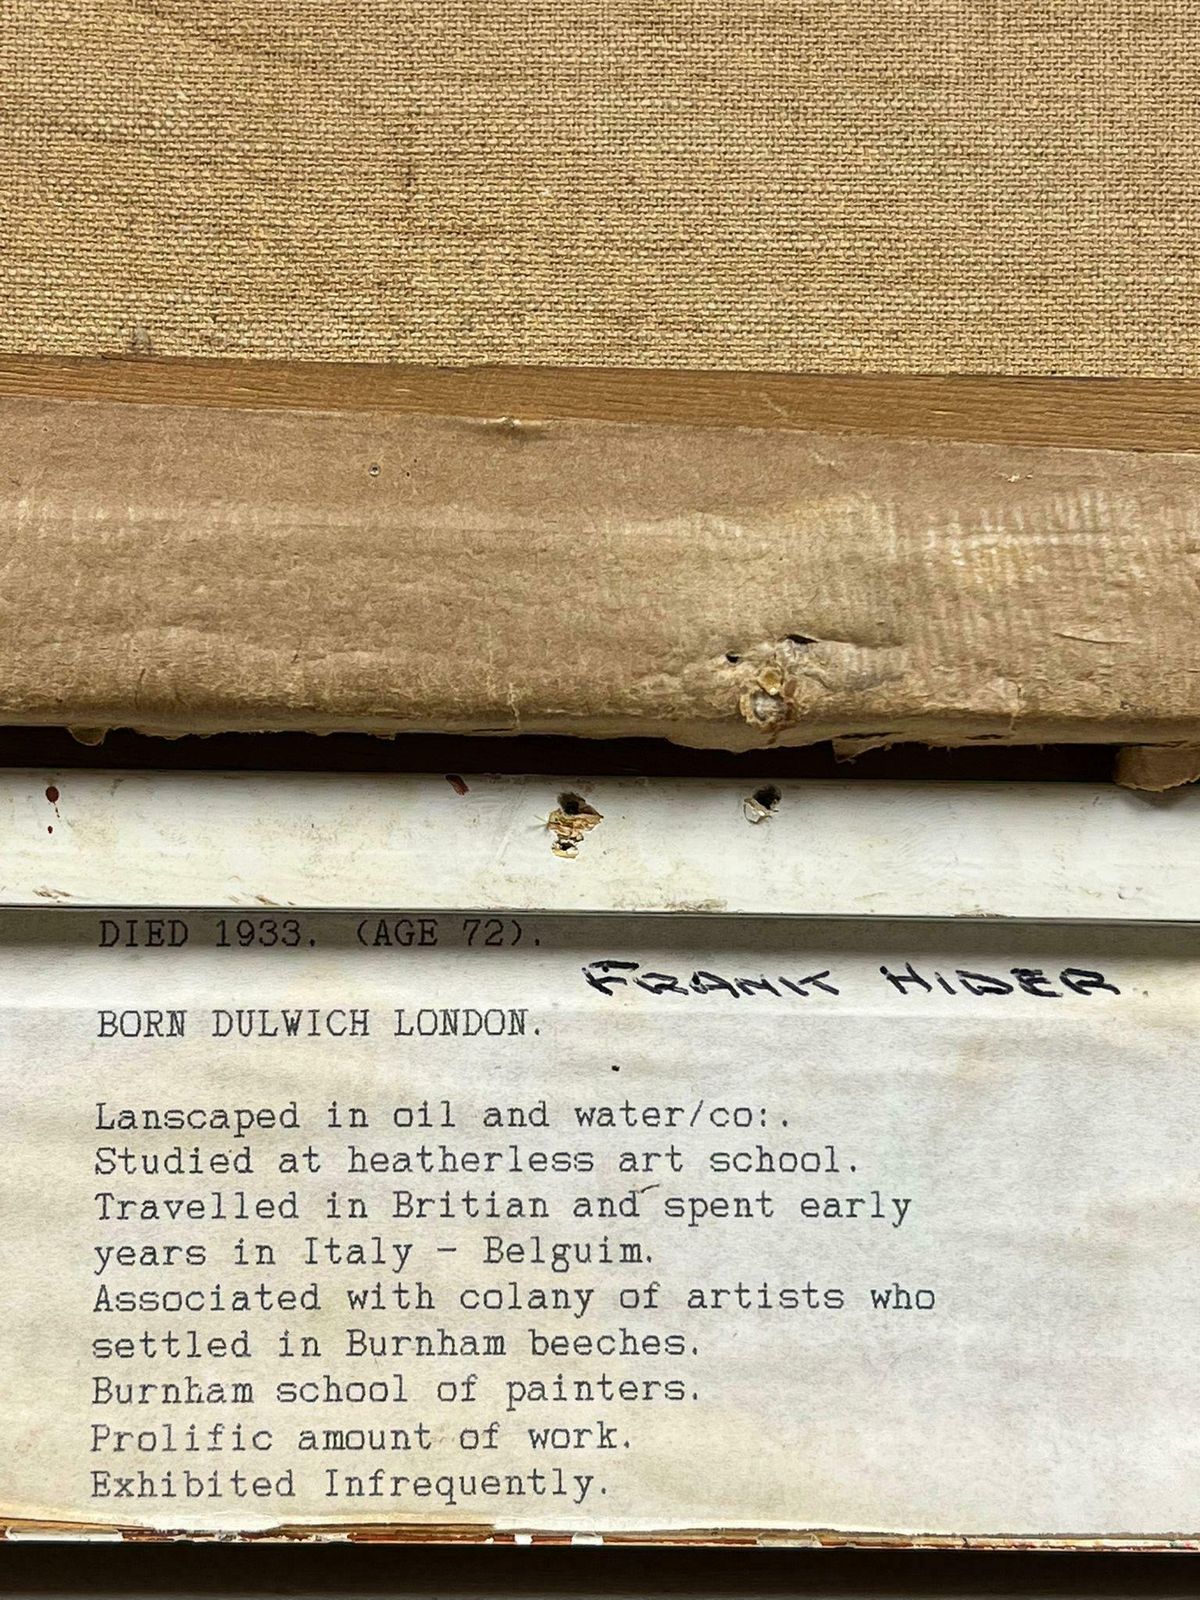 DIED 1933. (AGE 72).
FRANK HIDER
BORN DULWICH LONDON.
Lanscaped in oil and water/co:.
Studied at heatherless art school.
Travelled in Britian and spent early
years in Italy - Belguim.
Associated with colany of artists who
settled in Burnham beeches.
Burnham school of painters.
Prolific amount of work.
Exhibited Infrequently.